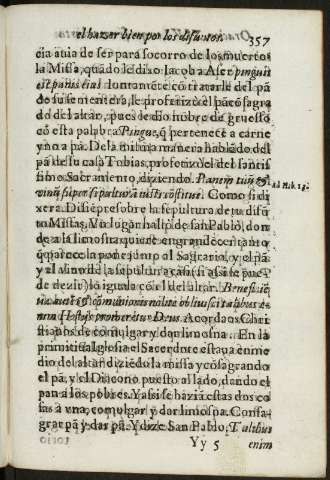 el hazer bien por los difuntos. 357
cia auia de ser para socorro de los muertos
la Missa, quãdo le dixo Iacob a Aser pinguis
est panis eius? Iuntamẽte cõ tratarle del pã
de su sementera, le profetizò el pã cõsagra
do del altar, pues le dio nõbre de gruesso
cõ esta palabra Pingue, q̃ pertenece a carne
y no a pã. De la misma manera hablãdo del
pã de su casa Tobias, profetizò el del santis
simo Sacramento, diziendo. Panem tuũ, &
vinũ super sepulturã iusti cõstitue. Como si di
xera. Dì siẽpre sobre la sepultura de tu difũ
to Missas. Vn lugar hallo de san Pablo, don
de a la limosna quiere engrandecer tanto
q̃ parece la pone junto al Sagrario, y el pã
y el aliuio de la sepultura casi (si assi se pue
de dezir) lo iguala cõ el del altar. Beneficiẽ
tiæ autẽ & communionis nolite obliuisci talibus e-
nim hostijs promeretur Deus. Acordaos Chri
stianos de comulgar y dar limosna. En la
primitiua Iglesia el Sacerdote estaua en me
dio del altar diziẽdo la missa y cõsagrando
el pã, y el Diacono puesto al lado, dando el
pan a los pobres. Y assi se hazia estas dos co
sas a vna, comulgar y dar limosna. Consa-
grar pã y dar pã. Y dize San Pablo, Talibus
Yy 5 enim